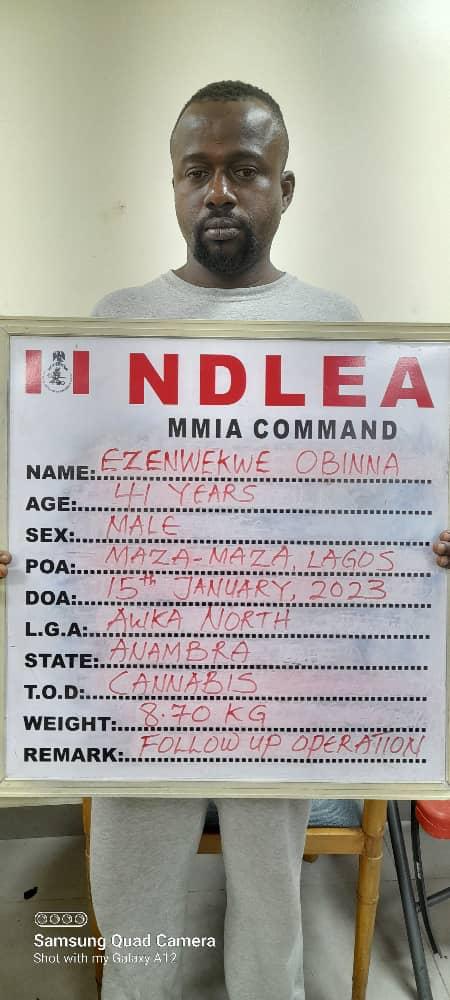 NDLEA
MMIA COMMAND
NAME: EZENWEKWE OBINNA
AGE: 41 YEARS
SEX: MALE
POA: MAZA-MAZA, LAGOS
DOA: 15th JANUARY, 2023
L.G.A: AWKA NORTH
STATE: ANAMBRA
T.O.D: CANNABIS
WEIGHT: 8.70 KG
REMARK: FOLLOW UP OPERATION
Samsung Quad Camera
Shot with my Galaxy A12